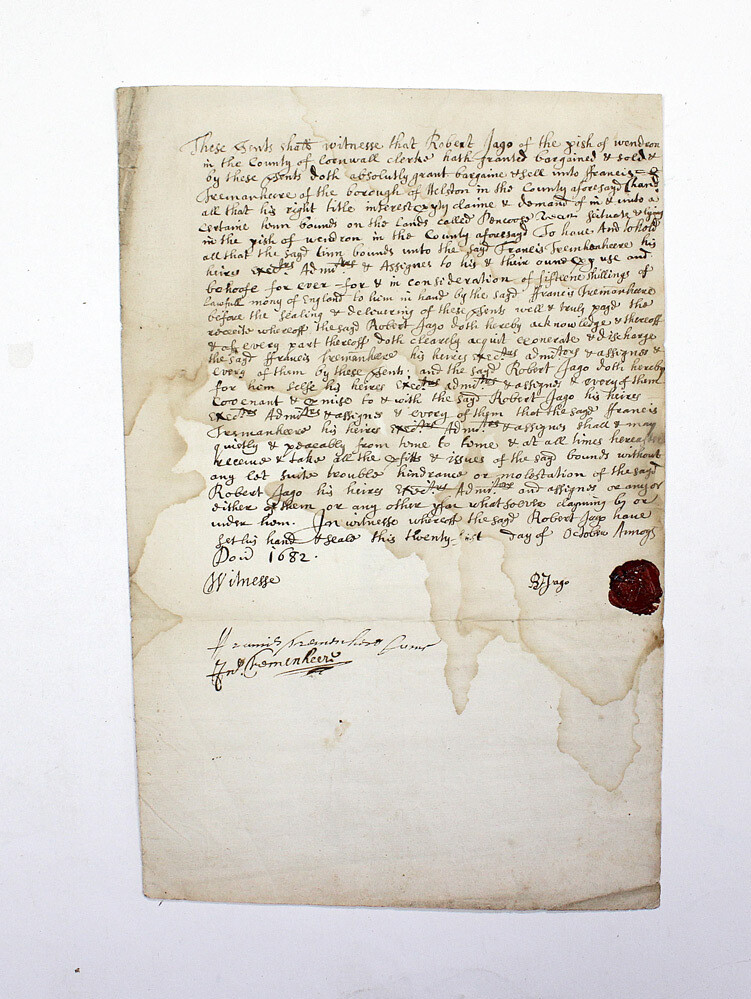 These p'sents shall witnesse that Robert Jago of the p'ish of wendron
in the County of Cornwall Clerke hath granted bargained & sold &
by these p'sents doth absolutely grant bargaine & sell unto Francis
Tremenheere of the borough of Helston in the County aforesayd
all that his right title interest p'pty claime & demand of in & unto a
Certaine tinn bounds on the Lands called Situate & lying
in the p'ish of wendron in the County aforesayd To have And to hold
all that the sayd tinn bounds unto the sayd Francis Tremenheere his
heires Exec:trs Admi:trs & Assignes to his & their owne p'p use and
behoofe for ever for & in consideration of fifteene shillings of
Lawfull mony of England to them in hand by the sayd ffrancis Tremenheere
before the sealing & delivering of these p'sents well & truly payd the
receite whereoff the sayd Robert Jago doth hereby acknowledge & thereoff
& of every part thereoff doth clearly acquit exonerate & discharge
the sayd ffrancis Tremenheere his heires exec:trs admi:tors & assignes &
every of them by these p'sents: and the sayd Robert Jago doth hereby
for him selfe his heires Exec:trs admi:trs & assignes & every of them
Covenant & p'mise to & with the sayd Robert Jago his heires
Exec:trs Admi:trs & assignes & every of them that the sayd ffrancis
Tremenheere his heires exec:trs Admi:trs & assignes shall & may
quietly & peaceably from time to time & at all times hereafter
receive & take all the p'fitts & issues of the sayd bounds without
any let suite trouble hindrance or molestation of the sayd
Robert Jago his heires Exec:trs Admi:tors and assignes or any or
either of them or any other p'son whatsoever clayming by or
under them. In witnesse whereoff the sayd Robert Jago have
Set his hand & seale this twenty- day of October Annoq
Dom 1682.
Witnesse
R Jago
Francis Tremenheere
Jn:o Tremenheere